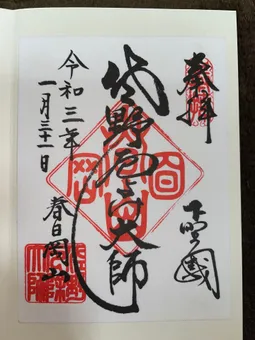 奉拝
下野國
佐野厄除大師
令和三年
一月三十一日
春日岡山